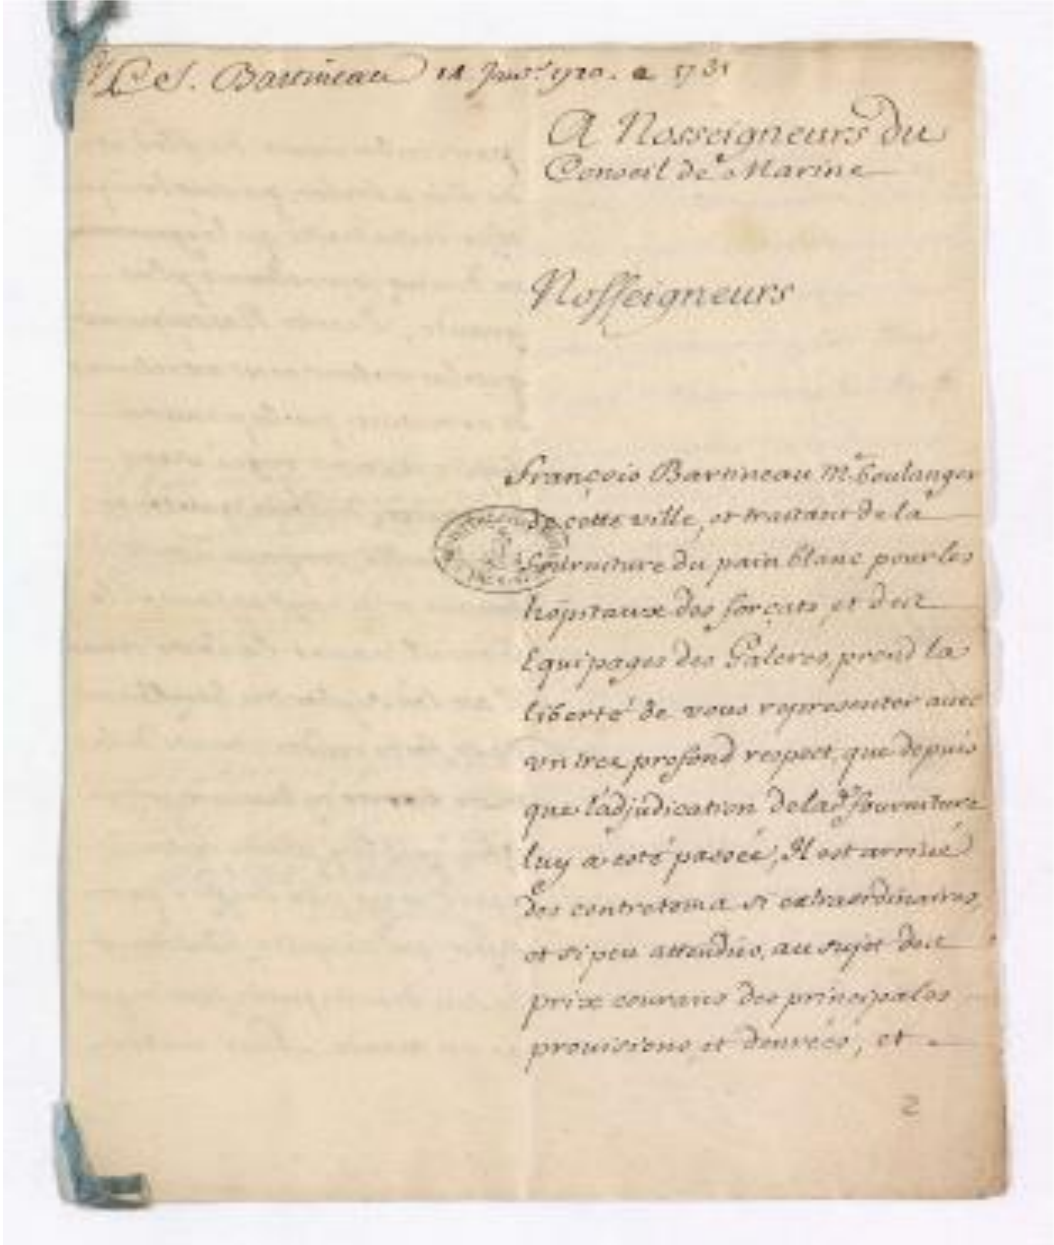 S. Bartineau 14 Janv.r 1720. a 1731
A Nosseigneurs du
Conseil de Marine
Nosseigneurs
François Bartineau M.e boulanger
de cette ville, et traitant de la
fourniture du pain blanc pour les
hôpitaux des forçats, et des
Equipages des Galeres, prend la
liberté de vous representer avec
vn tres profond respect, que depuis
que l'adjudication de lad.e fourniture
luy a esté passée, Il est arrivé
des contretems si extraordinaires,
et si peu attendus, au sujet des
prix courans des principales
prouisions, et denrées, et
2